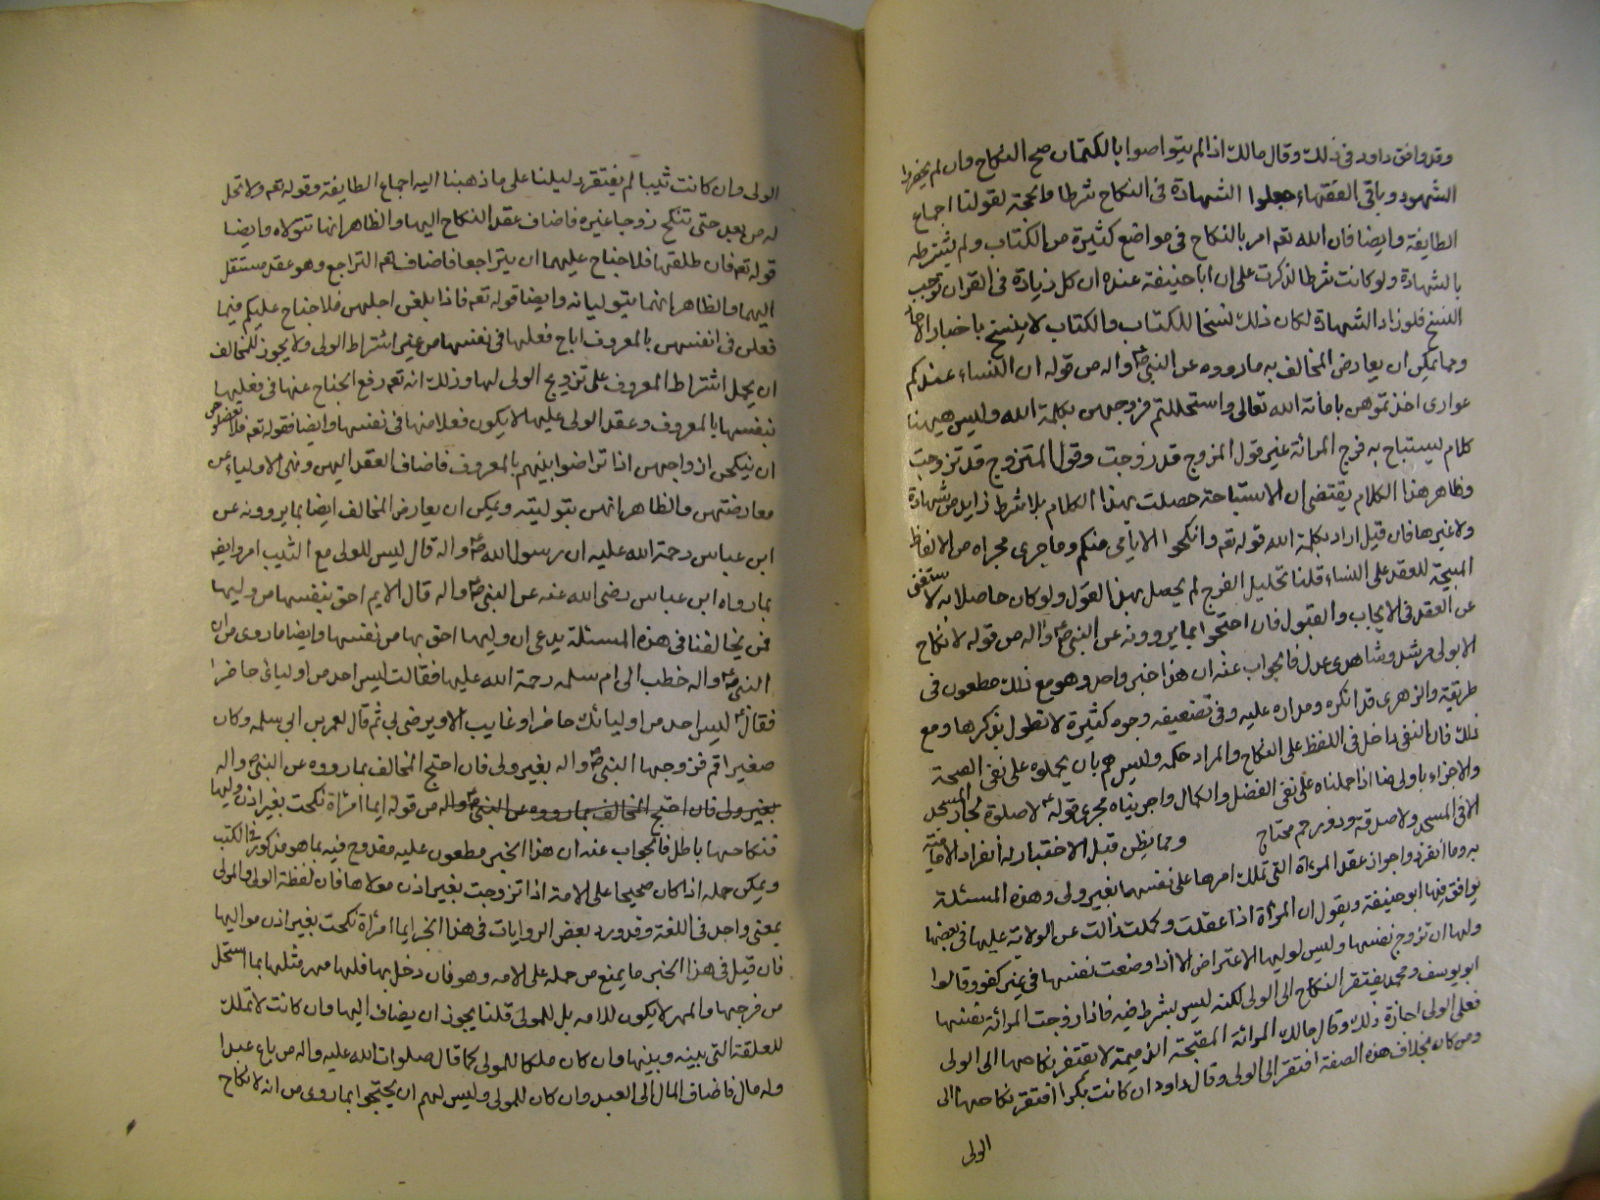 وقد وافق داود في ذلك وقال مالك اذا لم يتواصوا بالكتمان صح النكاح وان لم يحضروا
الشهود وباقي الفقهاء جعلوا الشهادة في النكاح شرطا والحجة لقولنا اجماع
الطايفة وايضا فان الله تعه امر بالنكاح في مواضع كثيرة من الكتاب ولم يشترطه
بالشهادة ولو كانت شرطا لذكرت على ان ابا حنيفة عنده ان كل زيادة في القران توجب
النسخ فلو زاد الشهادة لكان ذلك نسخا للكتاب والكتاب لا ينسخ باخبار الاحاد
ومما يمكن ان يعارض المخالف به ما رووه عن النبي ص واله من قوله ان النساء عندكم
عوارى اخذتموهن بامانة الله تعالى واستحللتم فروجهن بكلمة الله وليس ههنا
كلام يستباح به فرج المرائة غير قول المزوج قد زوجت وقول المتزوج قد تزوجت
وظاهر هذا الكلام يقتضي ان الاستباحة حصلت بهذا الكلام بلا شرط زايد من شهادة
ولا غيرها فان قيل اراد بكلمة الله قوله تعه وانكحوا الايامى منكم وما جرى مجراه من الالفاظ
المبيحة للعقد على النساء قلنا تحليل الفرج لم يحصل بهذا القول ولو كان حاصلا به لاستغنى
عن العقد في الايجاب والقبول فان احتجوا بما يروونه عن النبي ص واله من قوله لا نكاح
الا بولي مرشد وشاهدى عدل فالجواب عنه ان هذا خبر واحد وهو مع ذلك مطعون في
طريقة والزهرى قد انكره ومداره عليه وفي تضعيفه وجوه كثيرة لا نطول بذكرها ومع
ذلك فان النفي داخل في اللفظ على النكاح والمراد حكمه وليس هم بان يحملوه على نفي الصحة
والاجزاء باولى منا اذا حملناه على نفي الفضل والكمال واجريناه مجرى قوله ع لا صلوة لجار المسجد
الا في المسجد ولا صدقة وذو رحم محتاج ومما يظن قبل الاختبار له انفراد الامامية
به وما انفردوا جواز عقد المرءاة التي تملك امرها على نفسها بغير ولى وهذه المسئلة
يوافق فيها ابو حنيفة ويقول ان المراة اذا عقلت وكملت زالت عن الولاية عليها في بضعها
ولها ان تزوج نفسها وليس لوليها الاعتراض الا اذا وضعت نفسها في غير كفو وقالوا
ابو يوسف ومحمد يفتقر النكاح الى الولى لكنه ليس بشرط فيه فاذا زوجت المرائة نفسها
فعلى الولى اجازة ذلك وقال مالك المرائة المقبحة الذميمة لا يفتقر نكاحها الى الولى
ومن كان بخلاف هذه الصفة افتقر الى الولى وقال داود ان كانت بكرا افتقر نكاحها الى
الولى
الولى وان كانت ثيبا لم يفتقر دليلنا على ما ذهبنا اليه اجماع الطايفة وقوله تعه ولا تحل
له من بعد حتى تنكح زوجا غيره فاضاف عقد النكاح اليها والظاهر انها تتولاه وايضا
قوله تعه فان طلقها فلا جناح عليهما ان يتراجعا فاضاف تعه التراجع وهو عقد مستقل
اليهما والظاهر انهما يتوليانه وايضا قوله تعه فاذا بلغن اجلهن فلا جناح عليكم فيما
فعلن في انفسهن بالمعروف اباح فعلها في نفسها من غير اشتراط الولى ولا يجوز للمخالف
ان يحمل اشتراط المعروف على تزويج الولى لها وذلك انه تعه رفع الجناح عنها في فعلها
بنفسها بالمعروف وعقد الولى عليها لا يكون فعلا منها في نفسها وايضا فقوله تعه فلا تعضلوهن
ان ينكحن ازواجهن اذا تراضوا بينهم بالمعروف فاضاف العقد اليهن ونهى الاولياء عن
معارضتهن والظاهر انهن يتولينه ويمكن ان يعارض المخالف ايضا بما يروونه عن
ابن عباس رحمة الله عليه ان رسول الله ص واله قال ليس للولى مع الثيب امر وايضا
بما رواه ابن عباس رضي الله عنه عن النبي ص واله قال الايم احق بنفسها من وليها
فمن يخالفنا في هذه المسئلة يدعى ان وليها احق بها من نفسها وايضا ما روى من ان
النبي ص واله خطب الى ام سلمه رحمة الله عليها فقالت ليس احد من اوليائى حاضرا
فقال ع ليس احد من اوليائك حاضرا وغايب الا ويرضى بي ثم قال لعمر بن ابي سلمه وكان
صغيرا قم فزوجها النبي ص واله بغير ولى فان احتج المخالف بما رووه عن النبي ص واله
بغير ولى فان احتج المخالف بما رووه عن النبي ص واله من قوله ايما امراة نكحت بغير اذن وليها
فنكاحها باطل فالجواب عنه ان هذا الخبر مطعون عليه مقدوح فيه بما هو مذكور في الكتب
ويمكن حمله اذا كان صحيحا على الامة اذا تزوجت بغير اذن مولاها فان لفظة الولى والمولى
بمعنى واحد في اللغة وقد ورد بعض الروايات في هذا الخبر ايما امراة نكحت بغير اذن مواليها
فان قيل في هذا الخبر ما يمنع من حمله على الامه وهو فان دخل بها فلها مهر مثلها بما استحل
من فرجها والمهر لا يكون للامه بل للمولى قلنا يجوز ان يضاف اليها وان كانت لا تملك
للعلقة التي بينه وبينها وان كان ملكا للمولى كما قال صلوات الله عليه واله من باع عبدا
وله مال فاضاف المال الى العبد وان كان للمولى وليس لهم ان يحتجوا بما روى من انه لا نكاح